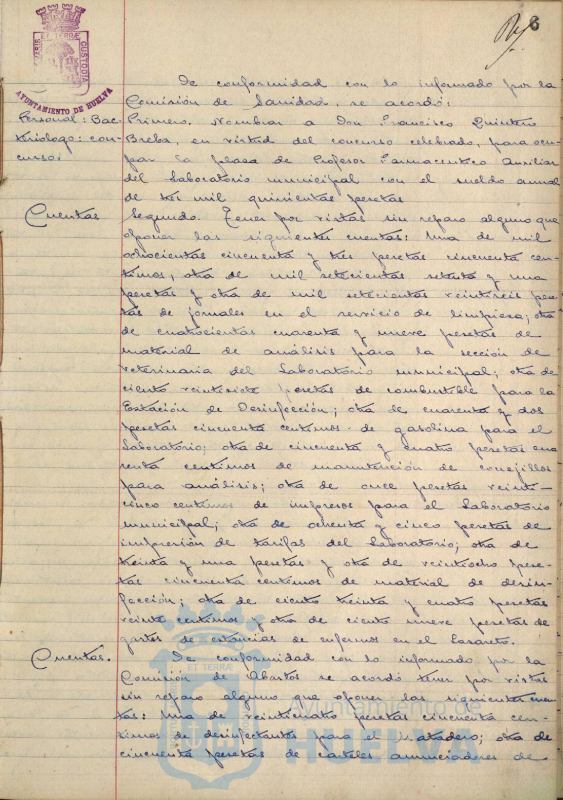 6
PORTUS MARIS ET TERRÆ CUSTODIA
AYUNTAMIENTO DE HUELVA
De conformidad con lo informado por la
Comisión de Sanidad, se acordó:
Personal: Bac-
teriologo: con-
curso:
Primero. Nombrar a Don Francisco Quintero
Breba, en virtud del concurso celebrado, para ocu-
par la plaza de Profesor Farmaceutico Auxiliar
del Laboratorio municipal con el sueldo anual
de tres mil quinientas pesetas
Cuentas
Segundo. Tener por vistas sin reparo alguno que
oponer las siguientes cuentas: Una de mil
ochocientas cincuenta y tres pesetas cincuenta cen-
timos, otra de mil setecientas setenta y una
pesetas y otra de mil setecientas veintiseis pese-
tas de jornales en el servicio de limpieza; otra
de cuatrocientas cuarenta y nueve pesetas de
material de análisis para la sección de
veterinaria del Laboratorio municipal; otra de
ciento veintisiete pesetas de combustible para la
Estación de Desinfección; otra de cuarenta y dos
pesetas cincuenta centimos de gasolina para el
Laboratorio; otra de cincuenta y cuatro pesetas cua
renta centimos de manutención de conejillos
para análisis; otra de once pesetas veinti-
cinco centimos de impresos para el Laboratorio
municipal; otra de ochenta y cinco pesetas de
impresión de tarifas del Laboratorio; otra de
treinta y una pesetas y otra de veintiocho pese-
tas cincuenta centimos de material de desin-
fección; otra de ciento treinta y cuatro pesetas
veinte centimos y otra de ciento nueve pesetas de
gastos de estancias de enfermos en el Lazareto.
Cuentas.
De conformidad con lo informado por la
Comisión de Abastos se acordó tener por vistas
sin reparo alguno que oponer las siguientes cuen
tas: Una de veinticuatro pesetas cincuenta cen-
timos de desinfectantes para el Matadero; otra de
cincuenta pesetas de carteles anunciadores de
ET TERRÆ
Ayuntamiento de
HUELVA